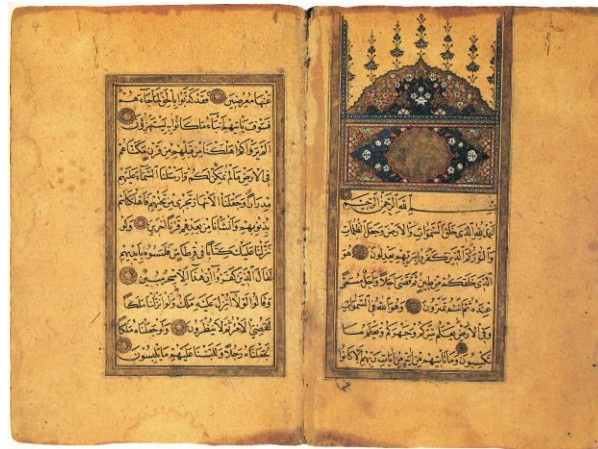 بِسْمِ اللهِ الرَّحْمٰنِ الرَّحِيمِ
اَلْحَمْدُ لِلهِ الَّذِي خَلَقَ السَّمٰوَاتِ وَالْاَرْضَ وَجَعَلَ الظُّلُمَاتِ
وَالنُّورَ ثُمَّ الَّذِينَ كَفَرُوا بِرَبِّهِمْ يَعْدِلُونَ هُوَ
الَّذِي خَلَقَكُمْ مِنْ طِينٍ ثُمَّ قَضٰى اَجَلًا وَاَجَلٌ مُسَمًّى
عِنْدَهُ ثُمَّ اَنْتُمْ تَمْتَرُونَ وَهُوَ اللهُ فِي السَّمٰوَاتِ
وَفِي الْاَرْضِ يَعْلَمُ سِرَّكُمْ وَجَهْرَكُمْ وَيَعْلَمُ مَا
تَكْسِبُونَ وَمَا تَأْتِيهِمْ مِنْ اٰيَةٍ مِنْ اٰيَاتِ رَبِّهِمْ اِلَّا كَانُوا
عَنْهَا مُعْرِضِينَ فَقَدْ كَذَّبُوا بِالْحَقِّ لَمَّا جَاءَهُمْ
فَسَوْفَ يَأْتِيهِمْ اَنْبَاءُ مَا كَانُوا بِهِ يَسْتَهْزِؤُنَ
اَلَمْ يَرَوْا كَمْ اَهْلَكْنَا مِنْ قَبْلِهِمْ مِنْ قَرْنٍ مَكَّنَّاهُمْ
فِي الْاَرْضِ مَا لَمْ نُمَكِّنْ لَكُمْ وَاَرْسَلْنَا السَّمَاءَ عَلَيْهِمْ
مِدْرَارًا وَجَعَلْنَا الْاَنْهَارَ تَجْرِي مِنْ تَحْتِهِمْ فَاَهْلَكْنَاهُمْ
بِذُنُوبِهِمْ وَاَنْشَأْنَا مِنْ بَعْدِهِمْ قَرْنًا اٰخَرِينَ وَلَوْ
نَزَّلْنَا عَلَيْكَ كِتَابًا فِي قِرْطَاسٍ فَلَمَسُوهُ بِاَيْدِيهِمْ
لَقَالَ الَّذِينَ كَفَرُوا اِنْ هٰذَا اِلَّا سِحْرٌ مُبِينٌ
وَقَالُوا لَوْلَا اُنْزِلَ عَلَيْهِ مَلَكٌ وَلَوْ اَنْزَلْنَا مَلَكًا
لَقُضِيَ الْاَمْرُ ثُمَّ لَا يُنْظَرُونَ وَلَوْ جَعَلْنَاهُ مَلَكًا
لَجَعَلْنَاهُ رَجُلًا وَلَلَبَسْنَا عَلَيْهِمْ مَا يَلْبِسُونَ